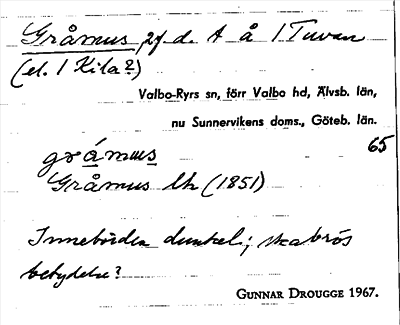 Gråmus, 2f d. t å 1 Tuvan
(el. 1 Kila?)
Valbo-Ryrs sn, förr Valbo hd, Älvsb. län,
nu Sunnervikens doms., Göteb. län.
65
grámus
Gråmus lh (1851)
Innebörden dunkel; skabrös
betydelse?
GUNNAR DROUGGE 1967.